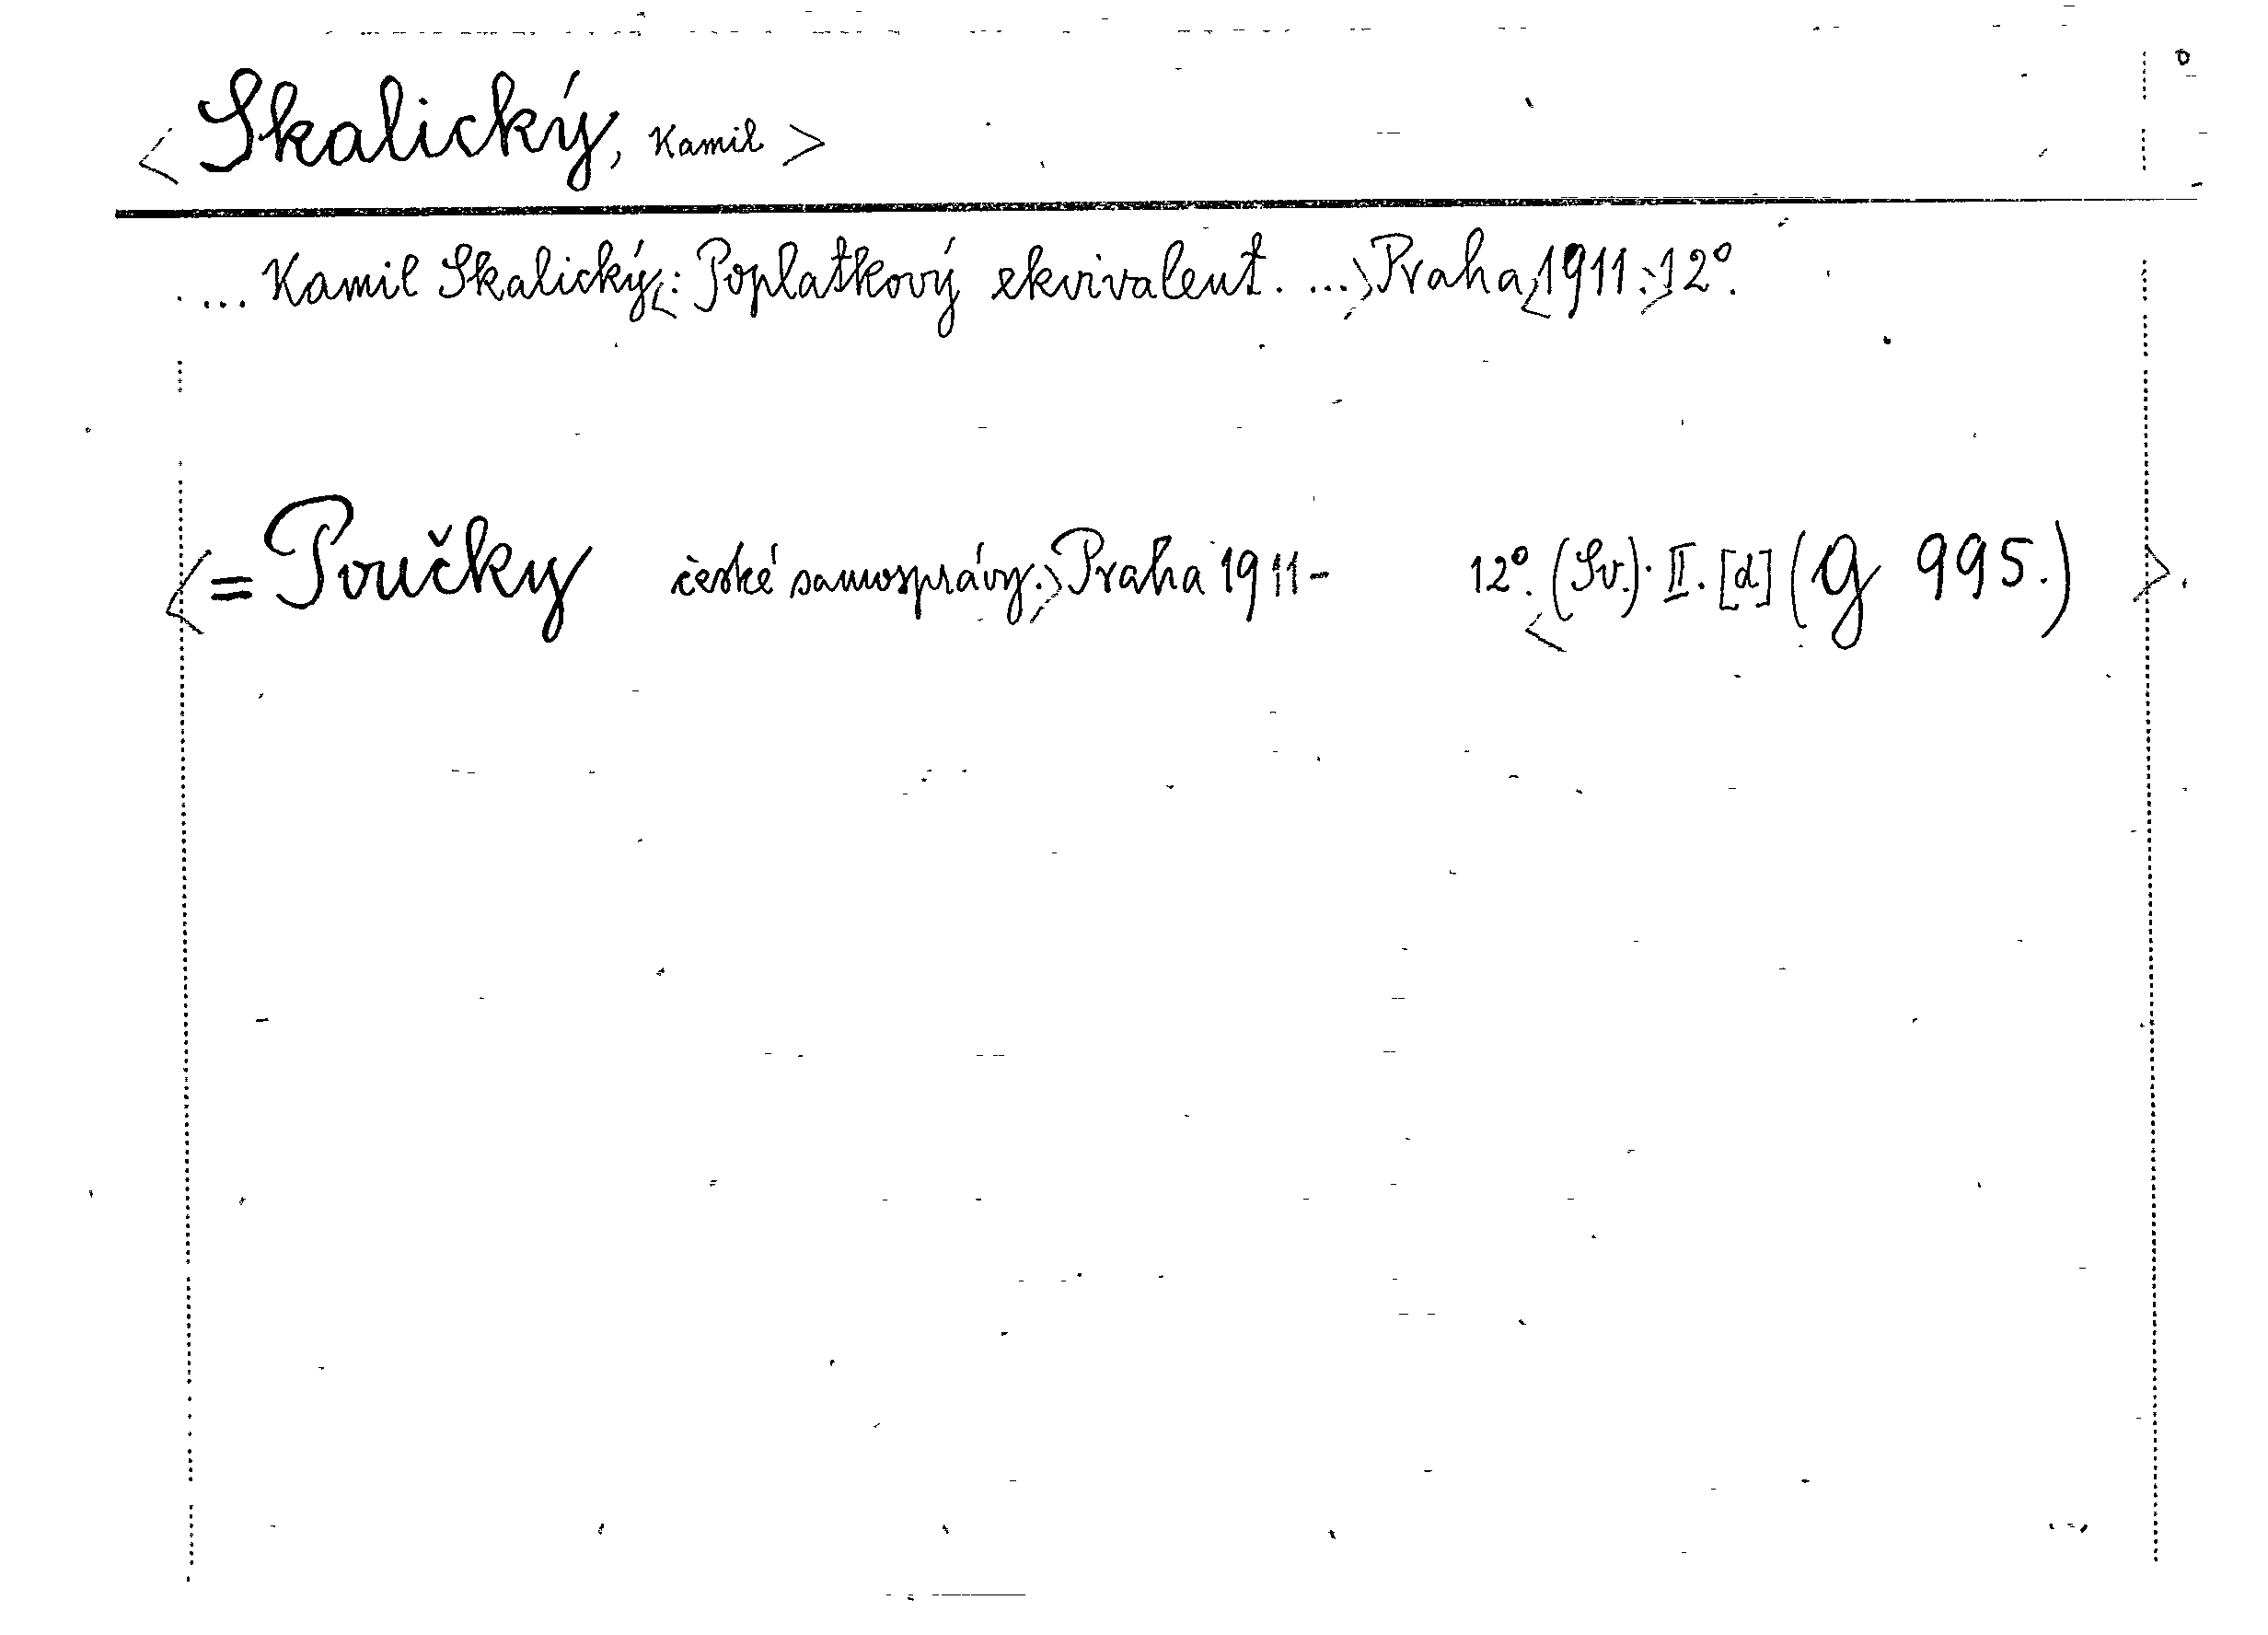 <Skalický, Kamil>
... Kamil Skalický<: Poplatkový ekvivalent. ...> Praha<, 1911.> 12°.
<= Poučky české samosprávy.> Praha 1911- 12°. <(Sv.). II. [d] (G 995.)>.